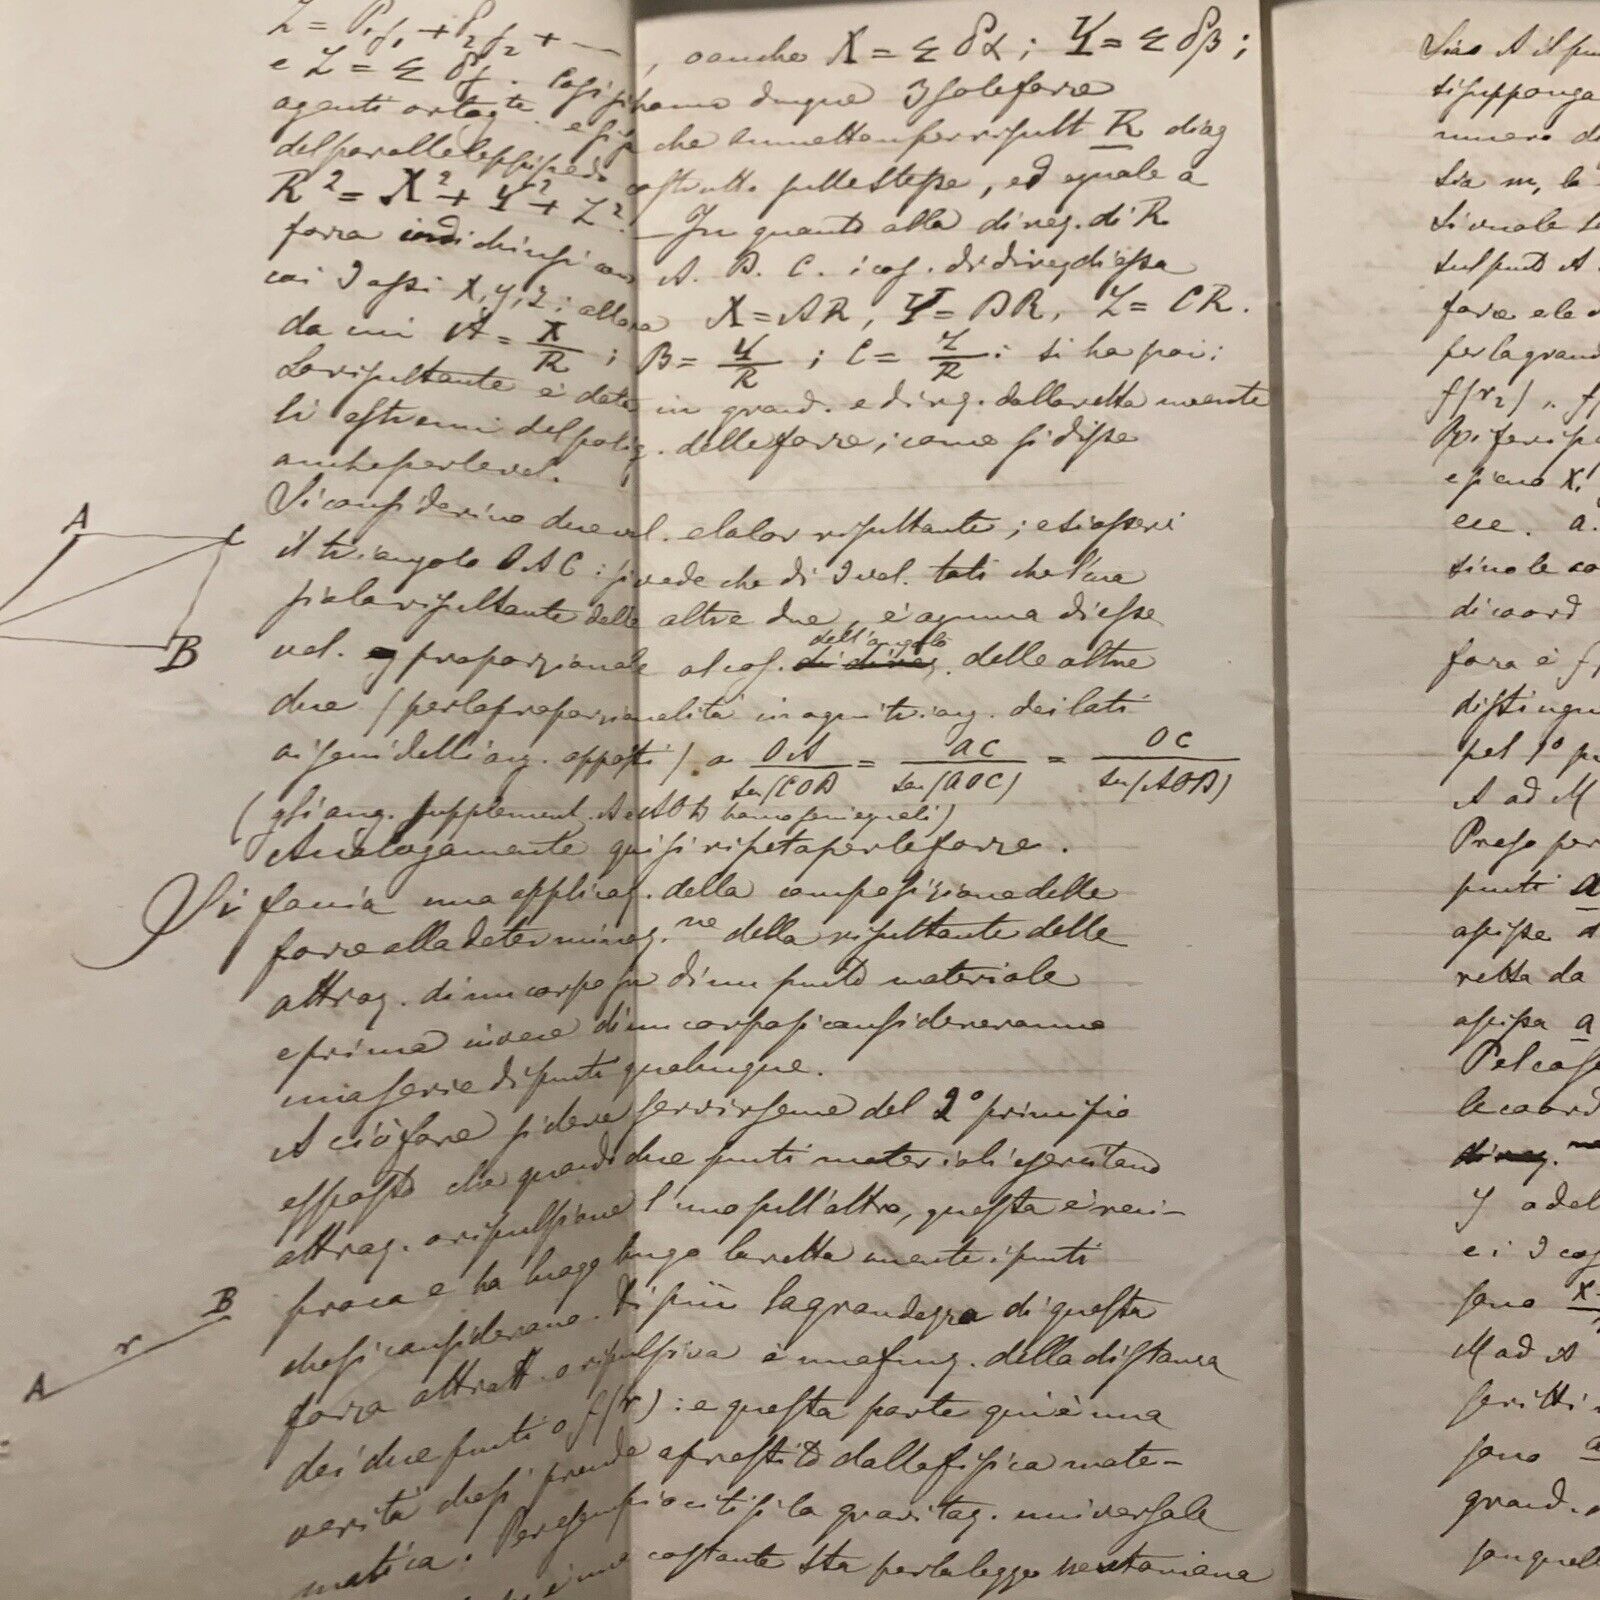 Z = P₁γ₁ + P₂γ₂ + —, o anche X = Σ Pα; Y = Σ Pβ;
e Z = Σ Pγ. Così si hanno dunque 3 sole forze
agenti ortog.te che ammettono per risult R diag
del parallelepipedo costrutto sulle stesse, ed eguale a
R² = X² + Y² + Z². — In quanto alla direz. di R
A. B. C. i cos. di direz di essa
coi 3 assi x, y, z; allora X = AR, Y = BR, Z = CR.
da cui A = X/R; B = Y/R; C = Z/R: si ha poi:
La risultante è data in grand. e direz. dalla retta unente
li estremi del polig. delle forze, come si disse
anche per le vel.
Si considerino due vel. e la lor risultante; e si osservi
il triangolo OAC: si vede che di 3 vel. tali che l'una
sia la risultante delle altre due, è ognuna di esse
vel. proporzionale al cos. di direz. dell'angolo delle altre
due (per la proporzionalità in ogni triang. dei lati
ai seni delli ang. opposti) o OA/sen(COB) = AC/sen(AOC) = OC/sen(AOB)
(gli ang. supplement. A e AOB hanno seni eguali)
Analogamente qui si ripeta per le forze.
Si faccia una applicaz. della composizione delle
forze alla determinaz.ne della risultante delle
attraz. di un corpo su di un punto materiale
e prima invece di un corpo si considereranno
una serie di punti qualunque.
A ciò fare si deve servirsene del 2° principio
esposto che quando due punti materiali esercitano
attraz. o ripulsione l'uno sull'altro, questa è reci-
proca e ha luogo lungo la retta unente i punti
che si considerano. Di più la grandezza di questa
forza attratt. o ripulsiva è una funz. della distanza
dei due punti o f(r): e questa parte qui è una
verità che si prende a prestito dalla fisica mate-
matica. Per esempio citisi la gravitaz. universale
costante sta per la legge newtoniana
A
C
B
A
r
B
Sia A il pun
si supponga
numero di
sia m, la
sul punto A
forze e le
per la grand
f(r₂) „ f
Riferis
e siano x,
ecc. a.
di coord
forza è f
distingu
pel 1° pu
A ad M
Preso per
punti a
retta da
a
Pel caso
le coord
direz.
e i 3 cos
sono x
M ad A
scritti
sono a
grand.